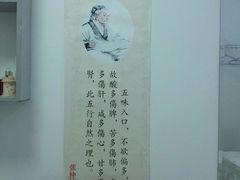 五味入口，不欲偏多，
故酸多傷脾，苦多傷肺，
多傷肝，咸多傷心，甘多
腎，此五行自然之理也。
張仲